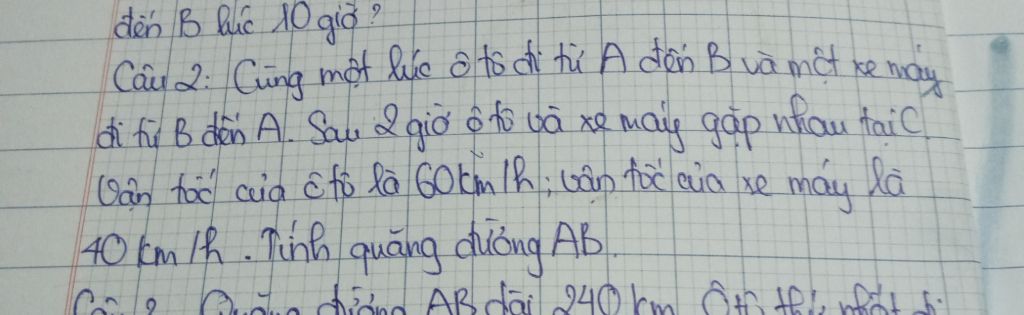 đến B lúc 10 giờ?
Câu 2: Cùng một lúc ô tô đi từ A đến B và một xe máy
đi từ B đến A. Sau 2 giờ ô tô và xe máy gặp nhau tại C.
Vận tốc của ô tô là 60km/h; vận tốc của xe máy là
40 km/h. Tính quãng đường AB.
AB dài 240 km